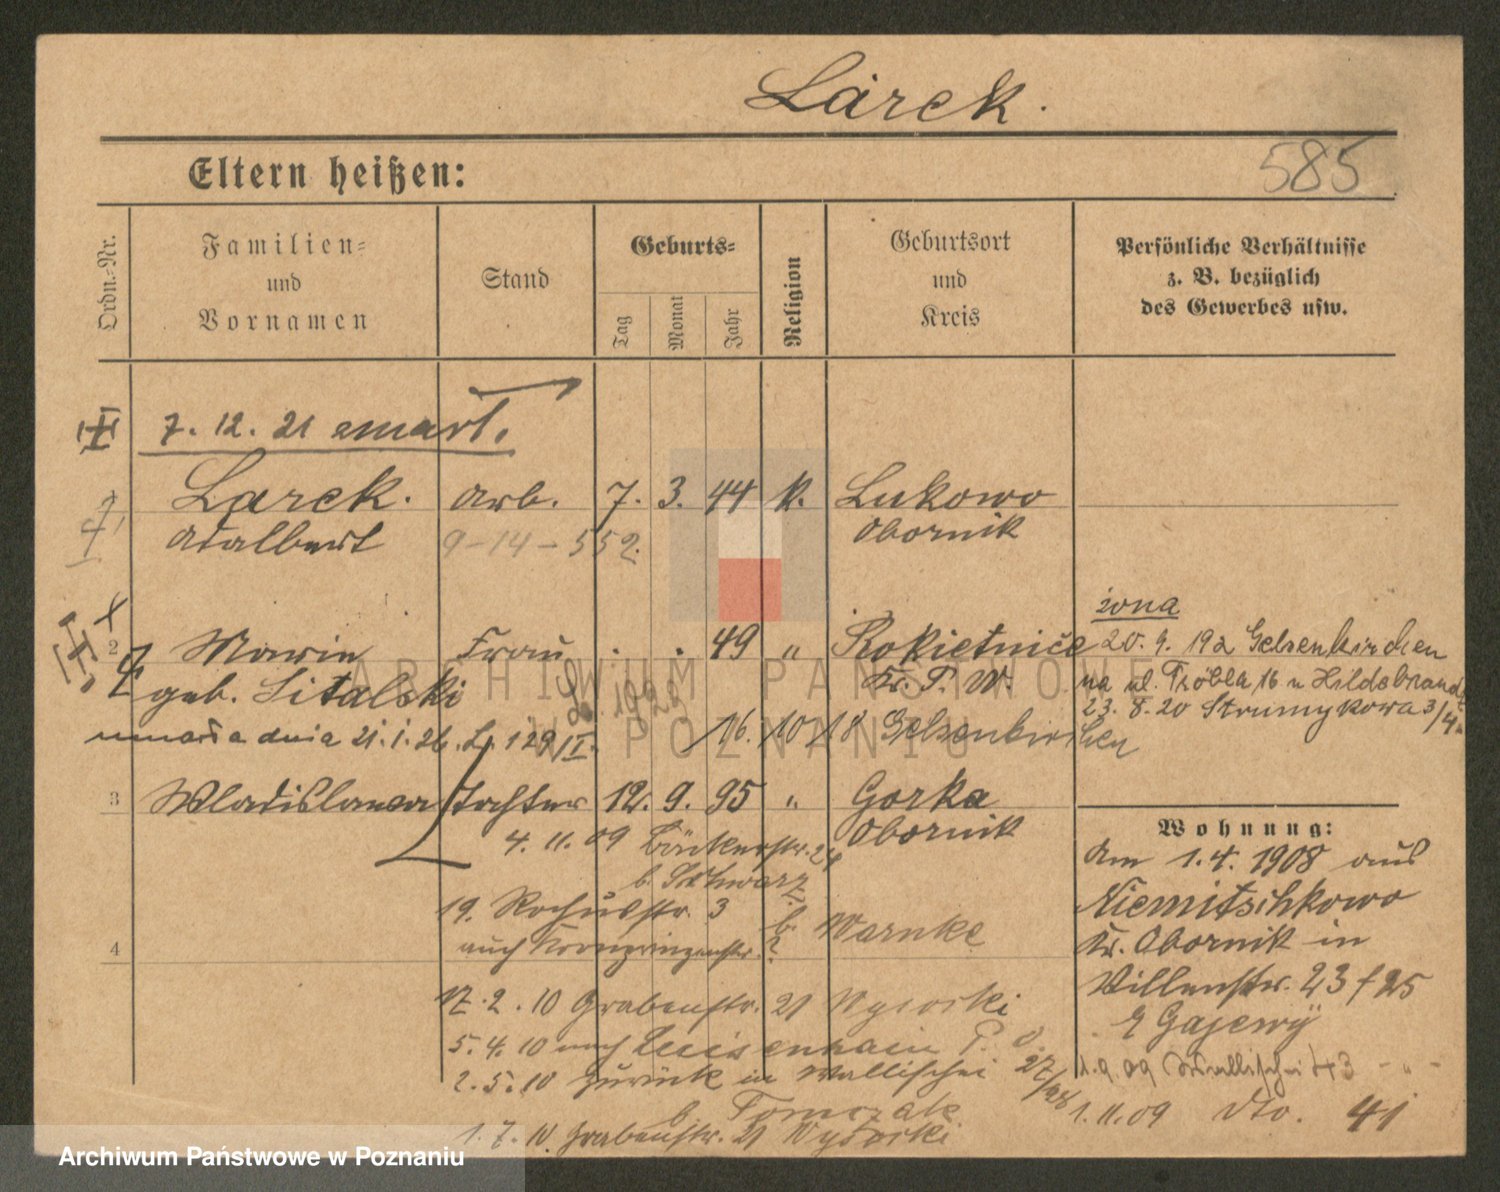 Larek.
Eltern heißen:
585
Ordn.-Nr.
Familien-
und
Vornamen
Stand
Geburts-
Tag
Monat
Jahr
Religion
Geburtsort
und
Kreis
Persönliche Verhältnisse
z. B. bezüglich
des Gewerbes usw.
7. 12. 21 zmarł.
1 Larek. Arb. 7. 3. 44 k. Lukowo
Adalbert 9-14-552. Obornik
żona
2 Marie Frau . . 49 " Rokietnice 20. 9. 19 z Gelsenkirchen
geb. Sitalski Kr. P. W. na ul. 16 u Hildebrandt
23. 8. 20 Strumykowa 3/4.
umarła dnia 21. 1. 26. L. 129/I. 16. 10 18 Gelsenkirchen
3 Wladislawa Tochter 12. 9. 95 " Gorka
Obornik
4. 11. 09 Bäckerstr. 24
b. Schwarz
19. Rochusstr. 3 b. Warnke
auch Kronprinzenstr. ?
4
17. 2. 10 Grabenstr. 21 Wysocki
5. 4. 10 nach Luisenhain P. O.
2. 5. 10 zurück in Wallischei 27/28
b. Tomczak
1. 7. 10. Grabenstr. 21 Wysocki
Wohnung:
Am 1. 4. 1908 aus
Niemitschkowo
Kr. Obornik in
Villenstr. 23 f 25
Gajewy
1. 9. 09 Wallischei 43 - " -
1. 11. 09 dto. 41
ARCHIWUM PAŃSTWOWE
W POZNANIU
Archiwum Państwowe w Poznaniu